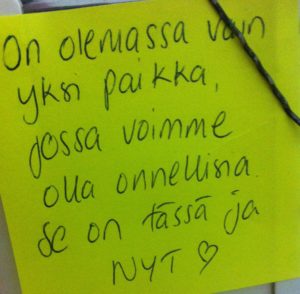 On olemassa vain
yksi paikka,
jossa voimme
olla onnellisia.
Se on tässä ja
NYT ♡